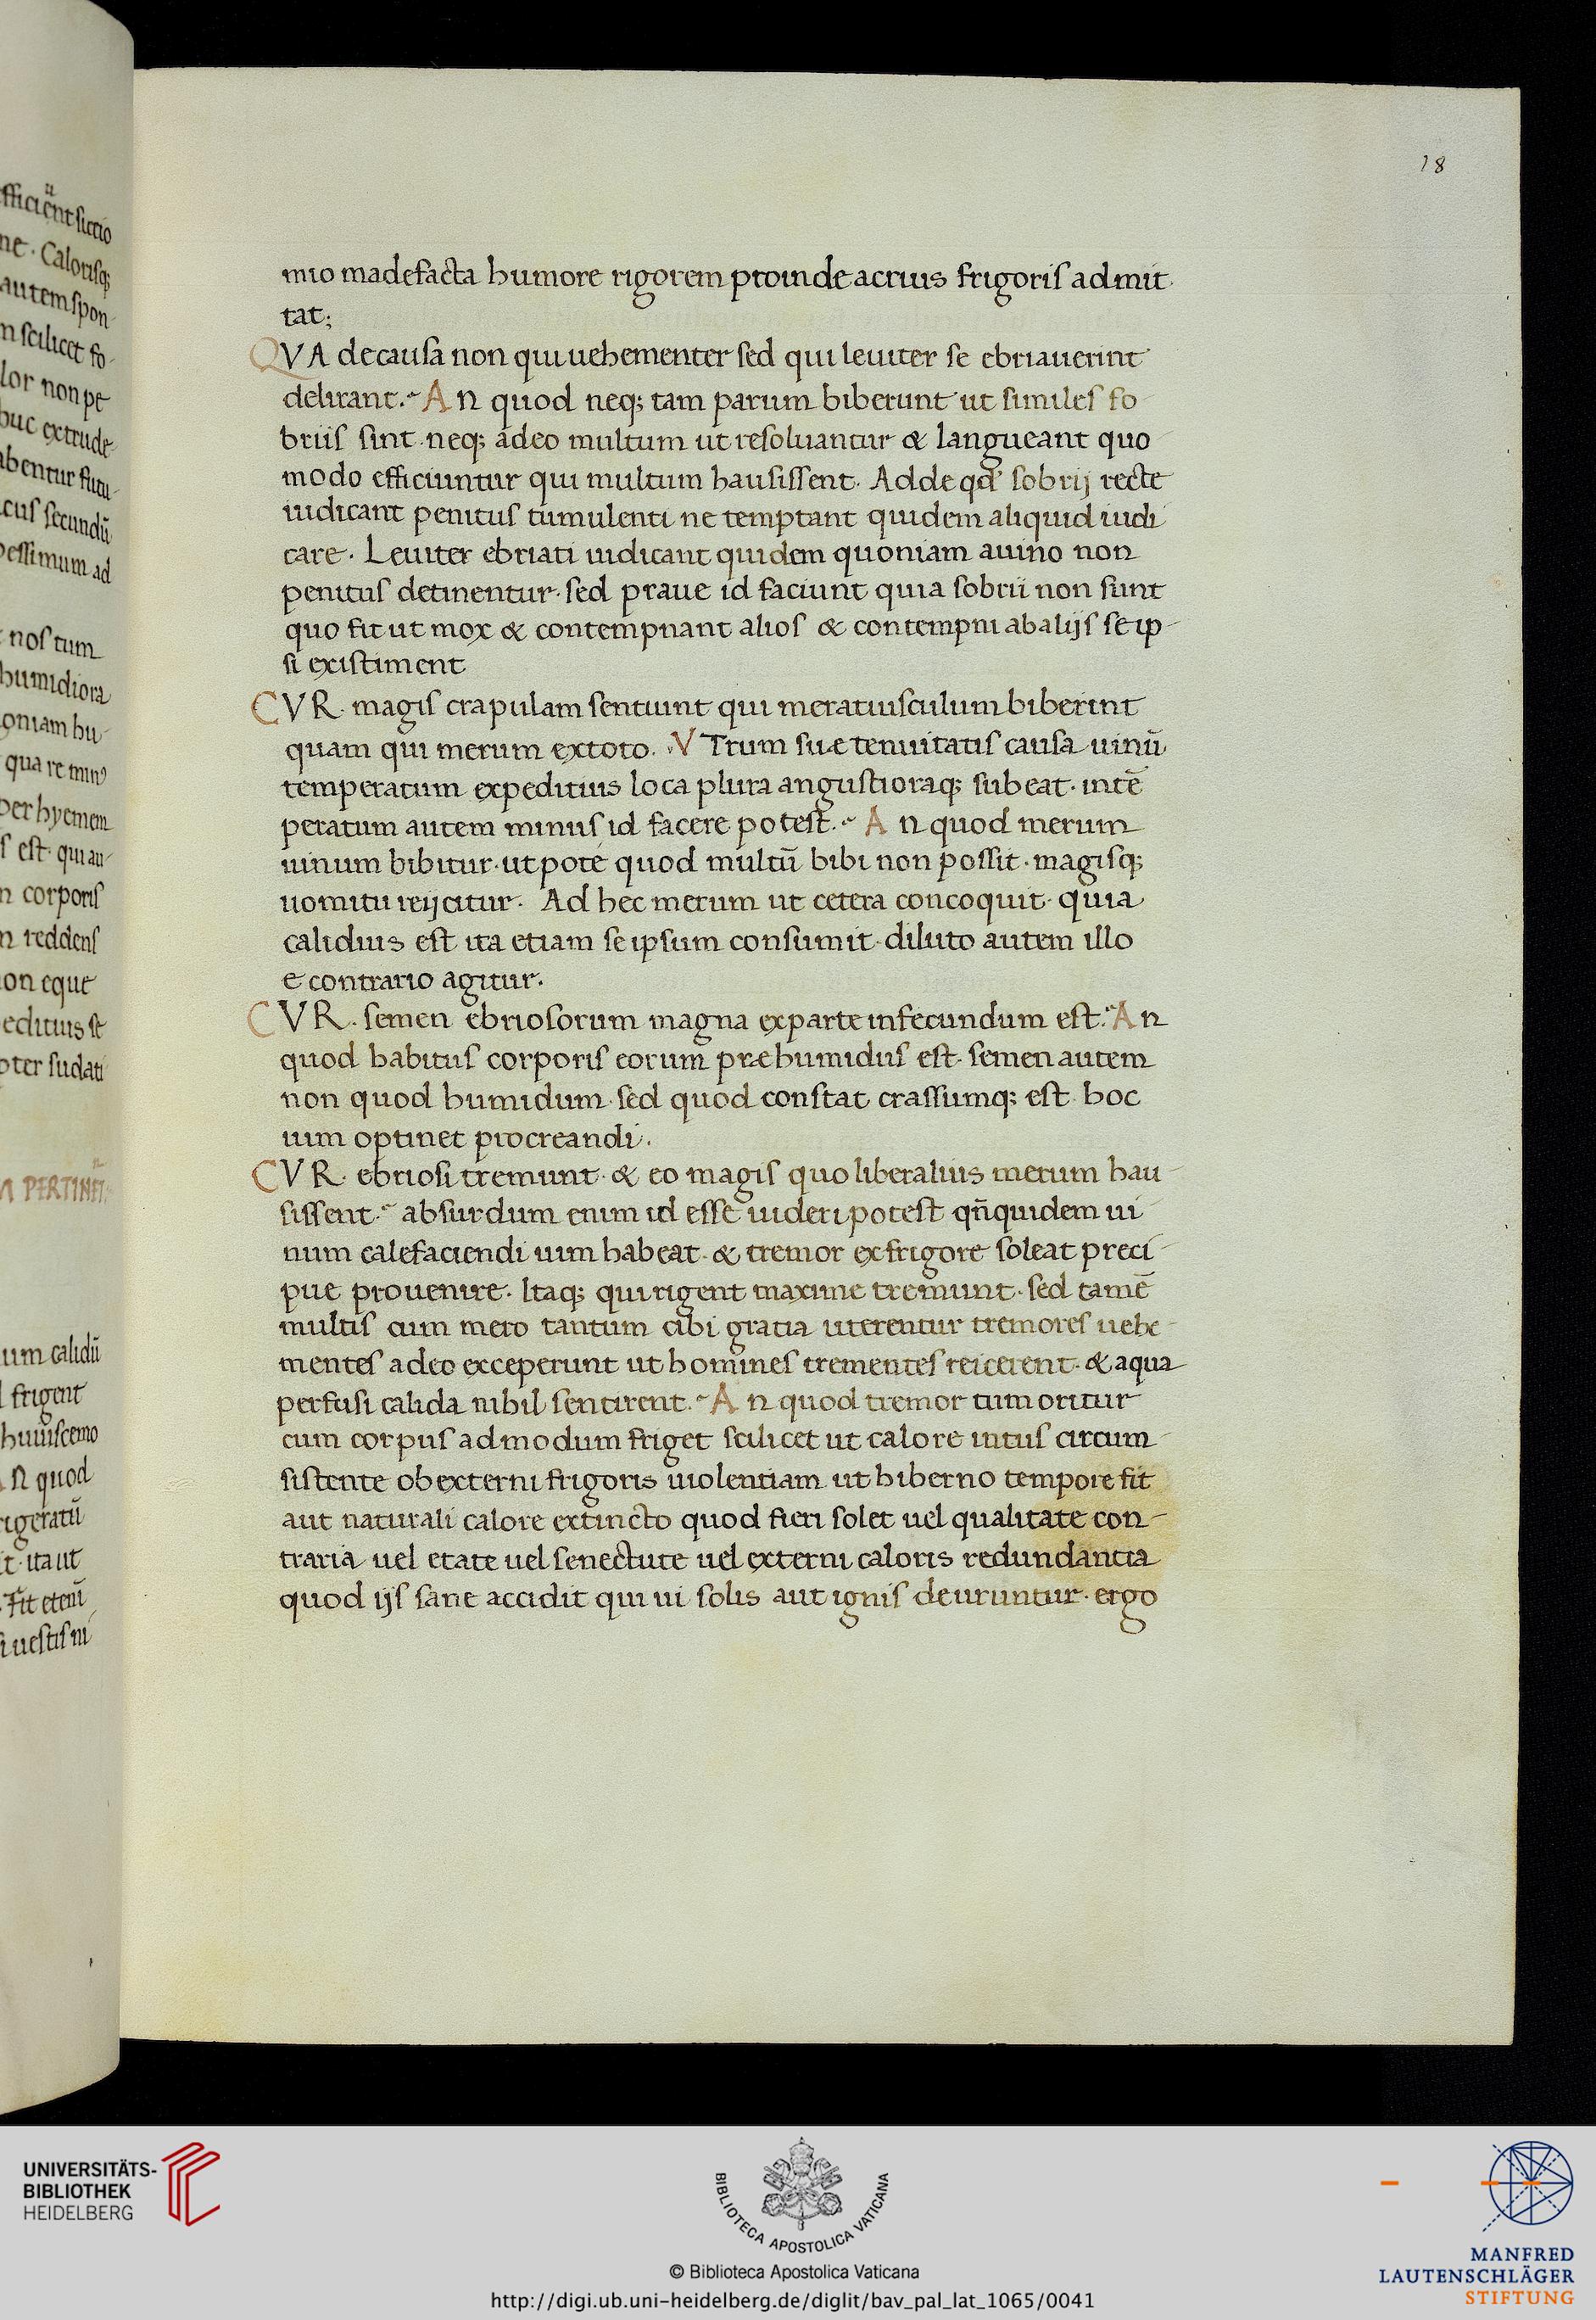 18
mio madefacta humore rigorem proinde acrius frigoris admit
tat;
QVA de causa non qui uehementer sed qui leuiter se ebriauerint
delirant. An quod neq; tam parum biberunt ut similes so
briis sint neq; adeo multum ut resoluantur & langueant quo
modo efficiuntur qui multum hausissent. Adde qd' sobrij recte
iudicant penitus tumulenti ne temptant quidem aliquid iudi
care. Leuiter ebriati iudicant quidem quoniam auino non
penitus detinentur. sed praue id faciunt quia sobrii non sunt
quo fit ut mox & contempnant alios & contempni ab alijs se ip-
si existiment
CVR. magis crapulam sentiunt qui meratiusculum biberint
quam qui merum ex toto. VTrum suæ tenuitatis causa uinū
temperatum expeditius loca plura angustioraq; subeat. intē
peratum autem minus id facere potest. An quod merum
uinum bibitur. utpote quod multū bibi non possit. magisq;
uomitu reijcitur. Ad hec merum ut cetera concoquit. quia
calidius est ita etiam se ipsum consumit. diluto autem illo
e contrario agitur.
CVR. semen ebriosorum magna ex parte infecundum est. An
quod habitus corporis eorum præhumidus est. semen autem
non quod humidum. sed quod constat crassumq; est hoc
uim optinet procreandi.
CVR. ebriosi tremunt. & eo magis quo liberalius merum hau-
sissent. absurdum enim id esse uideri potest qn̄quidem ui
num calefaciendi uim habeat. & tremor ex frigore soleat preci-
pue prouenire. Itaq; qui rigent maxime tremunt. sed tamē
multis cum mero tantum cibi gratia uterentur tremores uehe-
mentes adeo exceperunt ut homines trementes reicerent. & aqua
perfusi calida nihil sentirent. An quod tremor tum oritur
cum corpus admodum friget scilicet ut calore intus circum-
sistente ob externi frigoris uiolentiam ut hiberno tempore fit
aut naturali calore extincto quod fieri solet uel qualitate con-
traria uel etate uel senectute uel externi caloris redundantia
quod ijs sane accidit qui ui solis aut ignis deuruntur. ergo
UNIVERSITÄTS-
BIBLIOTHEK
HEIDELBERG
BIBLIOTECA APOSTOLICA VATICANA
© Biblioteca Apostolica Vaticana
http://digi.ub.uni-heidelberg.de/diglit/bav_pal_lat_1065/0041
MANFRED
LAUTENSCHLÄGER
STIFTUNG